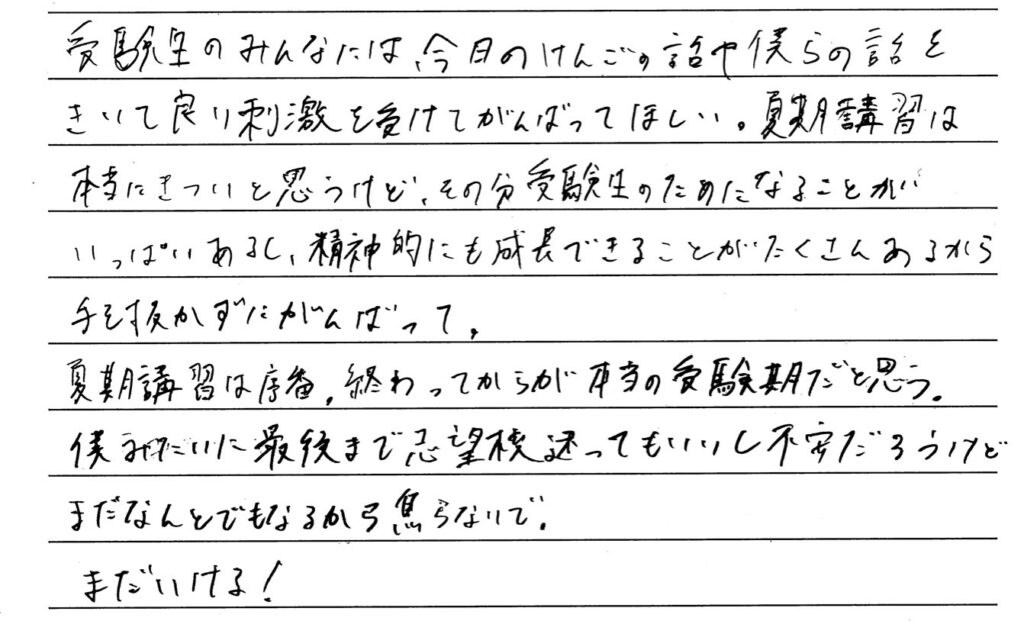 受験生のみんなには、今日のけんごの話や僕らの話を
きいて良い刺激を受けてがんばってほしい。夏期講習は
本当にきついと思うけど、その分受験生のためになることがい
いっぱいあるし、精神的にも成長できることがたくさんあるから
手を抜かずにがんばって。
夏期講習は序番。終わってからが本当の受験期だと思う。
僕みたいに最後まで志望校迷ってもいいし不安だろうけど
まだなんとでもなるから焦らないで。
まだいける!